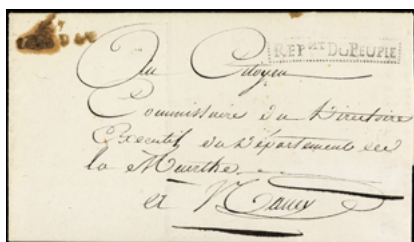 REPnt DU PEUPLE
Au Citoyen
Commissaire du Directoire
Executif du Département de
la Meurthe
a Nancy